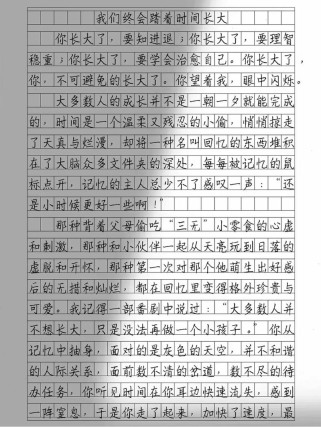 我们终会踏着时间长大
你长大了，要知进退；你长大了，要理智
稳重；你长大了，要学会治愈自己。你长大了，
你，不可避免的长大了。你望着我，眼中闪烁。
大多数人的成长并不是一朝一夕就能完成
的，时间是一个温柔又残忍的小偷，悄悄撩走
了天真与烂漫，却将一种名叫回忆的东西堆积
在了大脑众多文件夹的深处，每每被记忆的鼠
标点开，记忆的主人总少不了感叹一声：“还
是小时候更好一些啊！”
那种背着父母偷吃“三无”小零食的心虚
和刺激，那种和小伙伴一起从天亮玩到日落的
虚脱和开怀，那种第一次对那个他萌生出好感
后的无措和灿烂，都在回忆里变得格外珍贵与
可爱。我记得一部番剧中说过：“大多数人并
不想长大，只是没法再做一个小孩子。”你从
记忆中抽身，面对的是灰色的天空，并不和谐
的人际关系，面前数不清的岔道，数不尽的待
办任务，你听见时间在你耳边快速流失，感到
一阵窒息，于是你走了起来，加快了速度，最